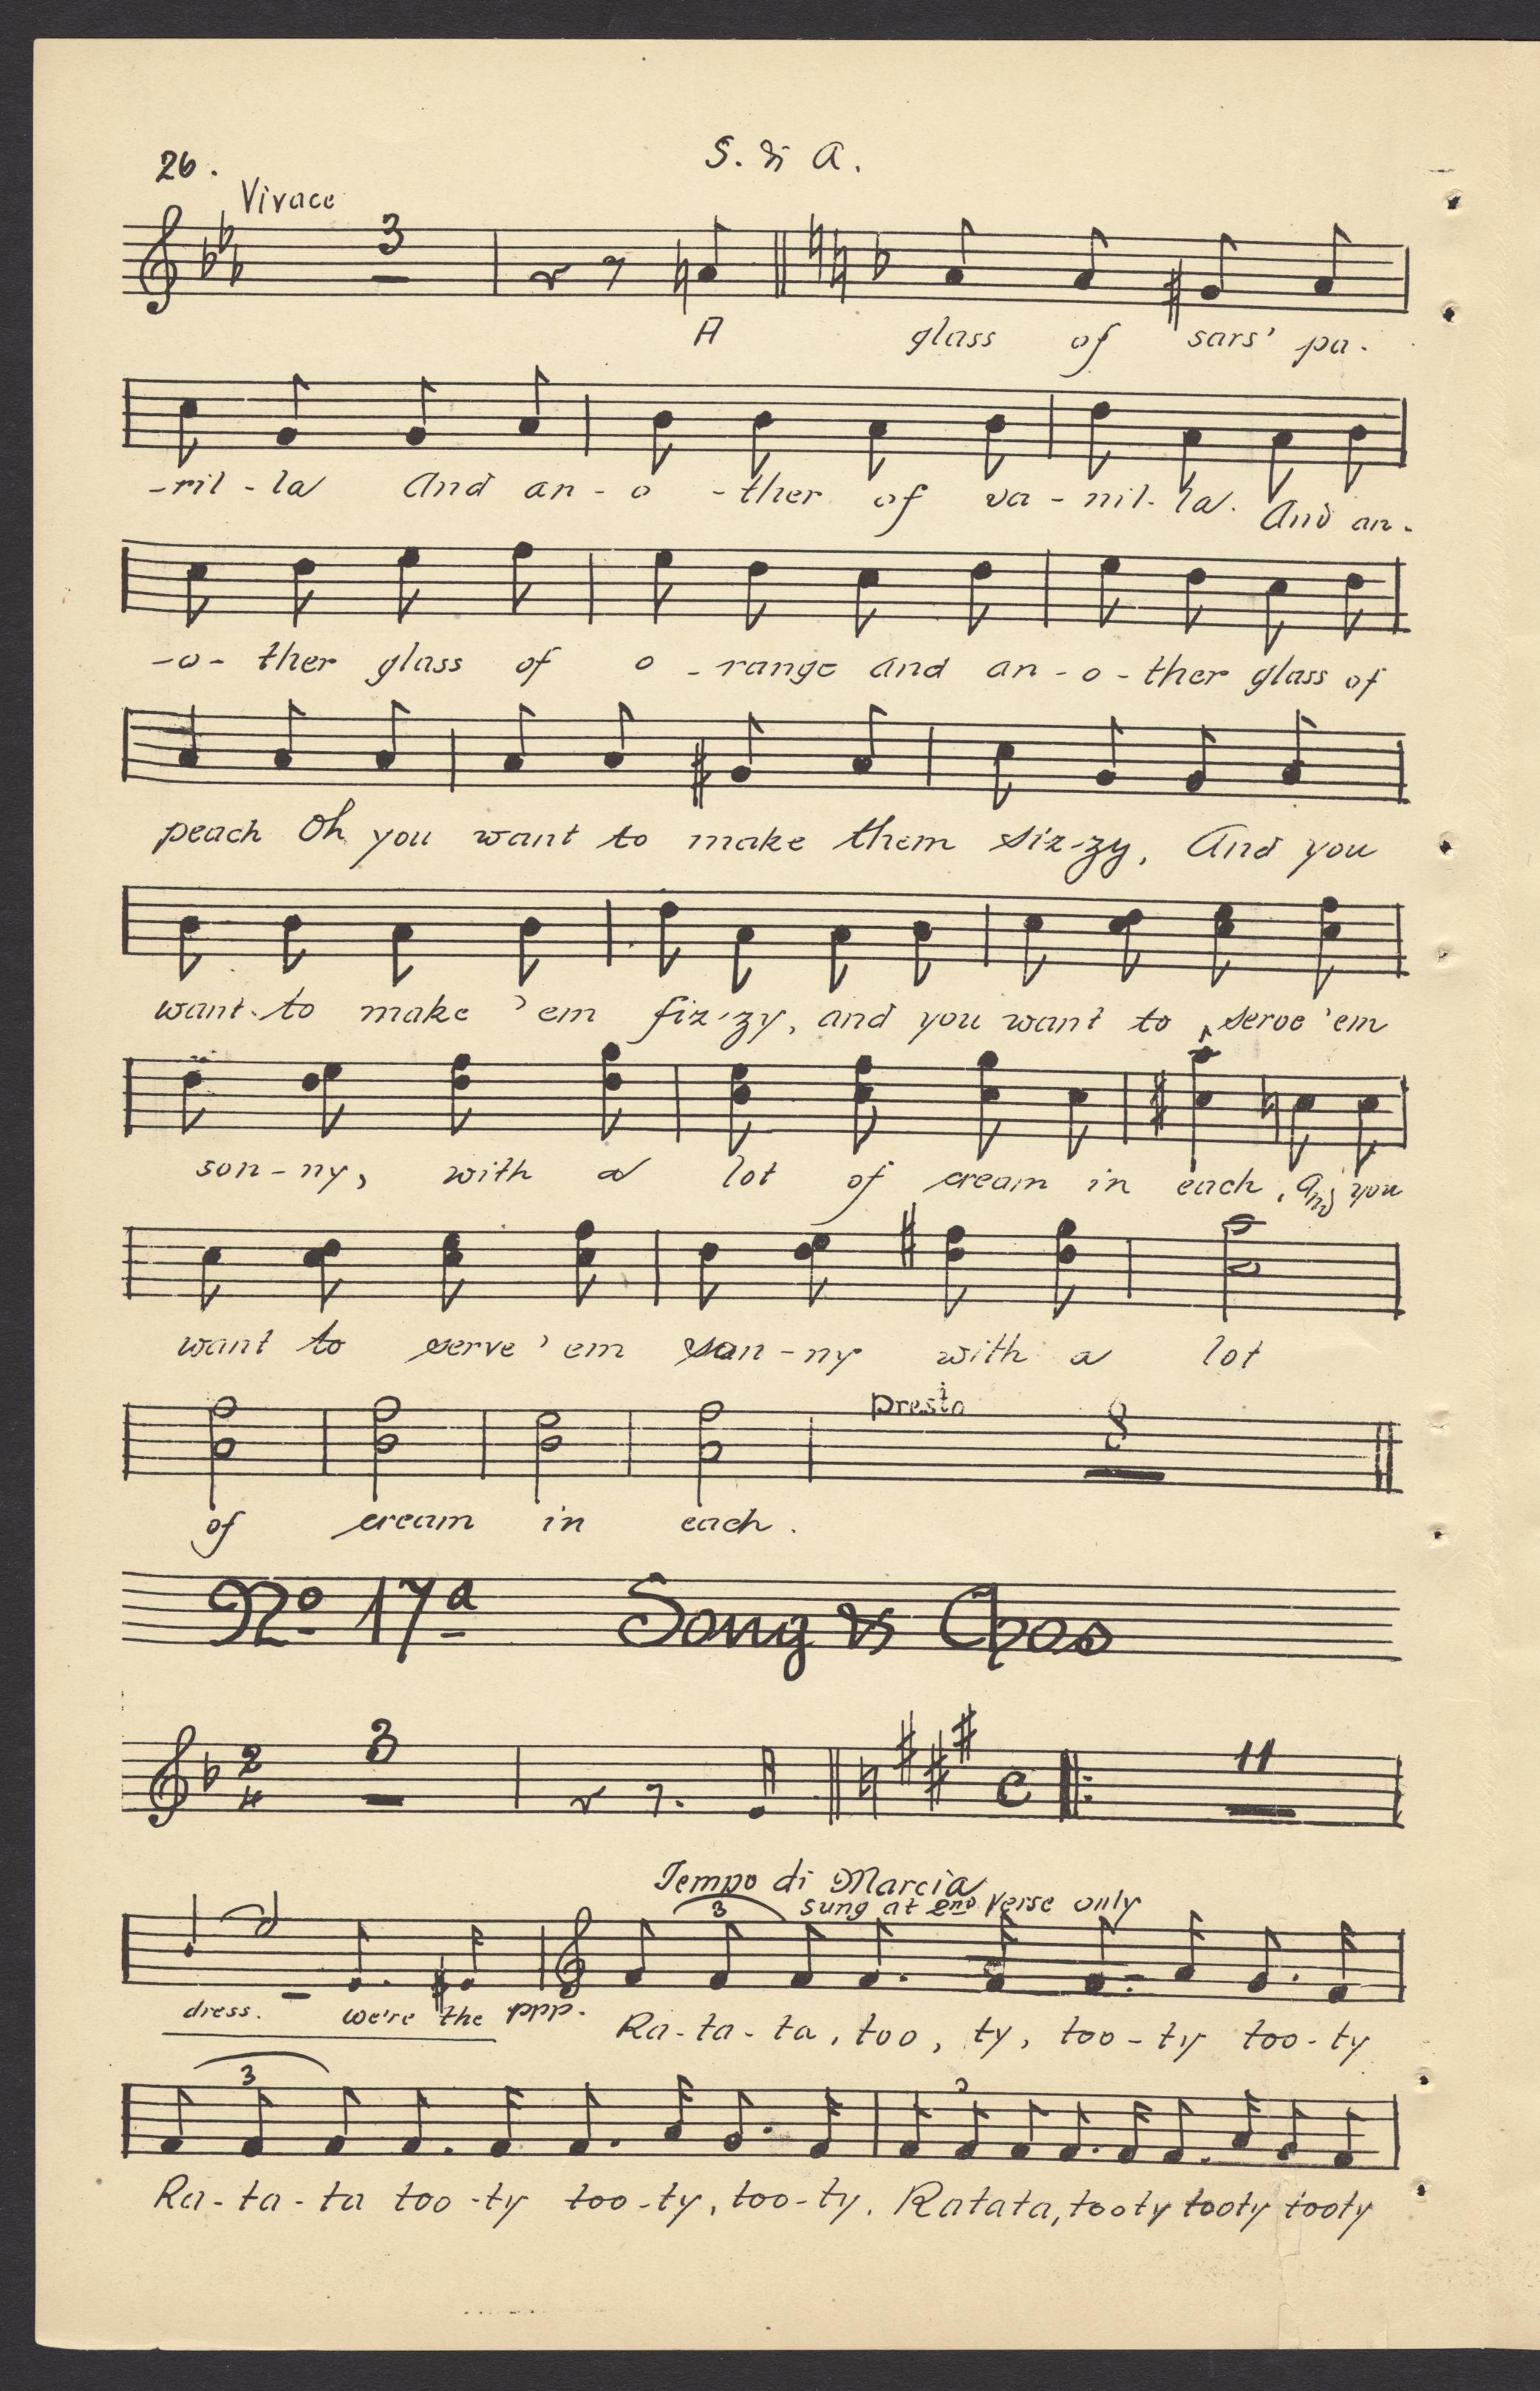 26.
S. & A.
Vivace
3
A glass of sars' pa-
-ril-la And an-o-ther of va-nil-la. And an-
-o-ther glass of o-range and an-o-ther glass of
peach Oh you want to make them siz-zy, And you
want to make 'em fiz-zy, and you want to serve 'em
son-ny, with a lot of cream in each, and you
want to serve 'em son-ny with a lot
presto
8
of cream in each.
No 17a Song & Chos
2
4
3
C
11
Tempo di Marcia
3
sung at 2nd verse only
dress. we're the ppp. Ra-ta-ta, too, ty, too-ty too-ty
3
3
Ra-ta-ta too-ty too-ty, too-ty. Ratata, tooty tooty tooty